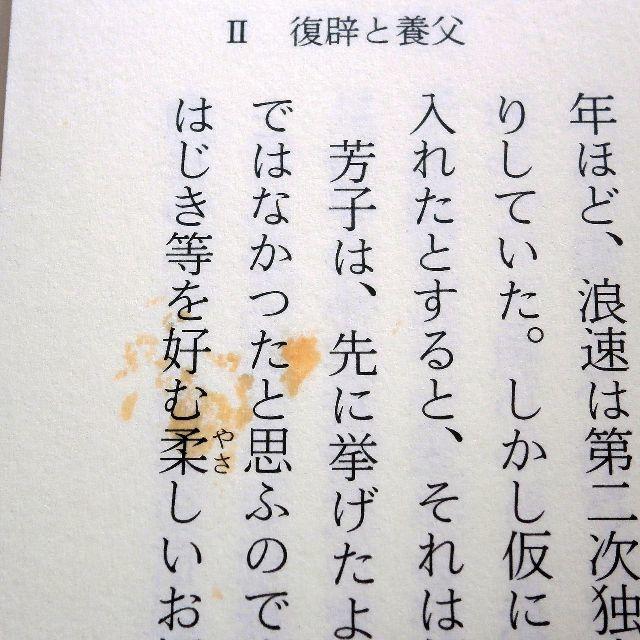 II 復辟と養父
年ほど、浪速は第二次独
りしていた。しかし仮に
入れたとすると、それは
芳子は、先に挙げたよ
ではなかつたと思ふので
はじき等を好む柔しいお
やさ